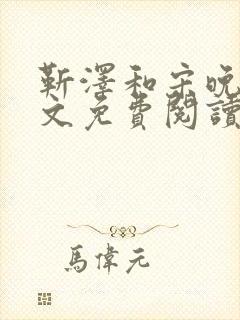 靳澤和宋晚
文免費閱讀
馬偉元